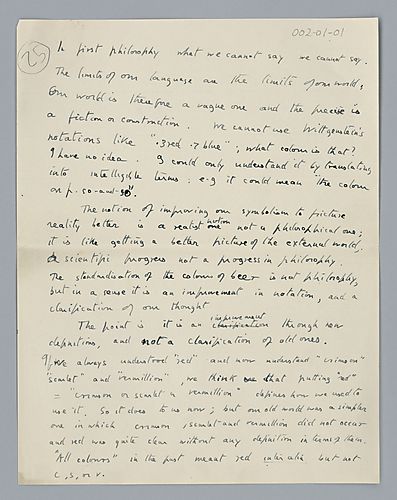 002-01-01
25
In first philosophy what we cannot say we cannot say.
The limits of our language are the limits of our world;
Our world is therefore a vague one and the precise is
a fiction or construction. We cannot use Wittgenstein's
notations like ".3 red .7 blue"; what colour is that?
I have no idea. I could only understand it by translating
into intelligible terms; e.g it could mean "the colour
on p. so-and-so".
The notion of improving our symbolism to picture
reality better is a realist notion not a philosophical one;
it is like getting a better picture of the external world.
A scientific progress not a progress in philosophy.
The standardisation of the colours of beer is not philosophy,
but in a sense it is an improvement in notation, and a
clarification of our thought
The point is it is an improvement clarification through new
definitions, and not a clarification of old ones.
If we always understood "red" and now understand "crimson"
"scarlet" and "vermillion", we think that putting "red"
= crimson or scarlet or vermillion" defines how we used to
use it. So it does to us now; but our old world was a simpler
one in which crimson, scarlet and vermillion did not occur
and red was quite clear without any definition in terms of them.
"All colours" in the past meant red inter alia but not
c, s, or v.